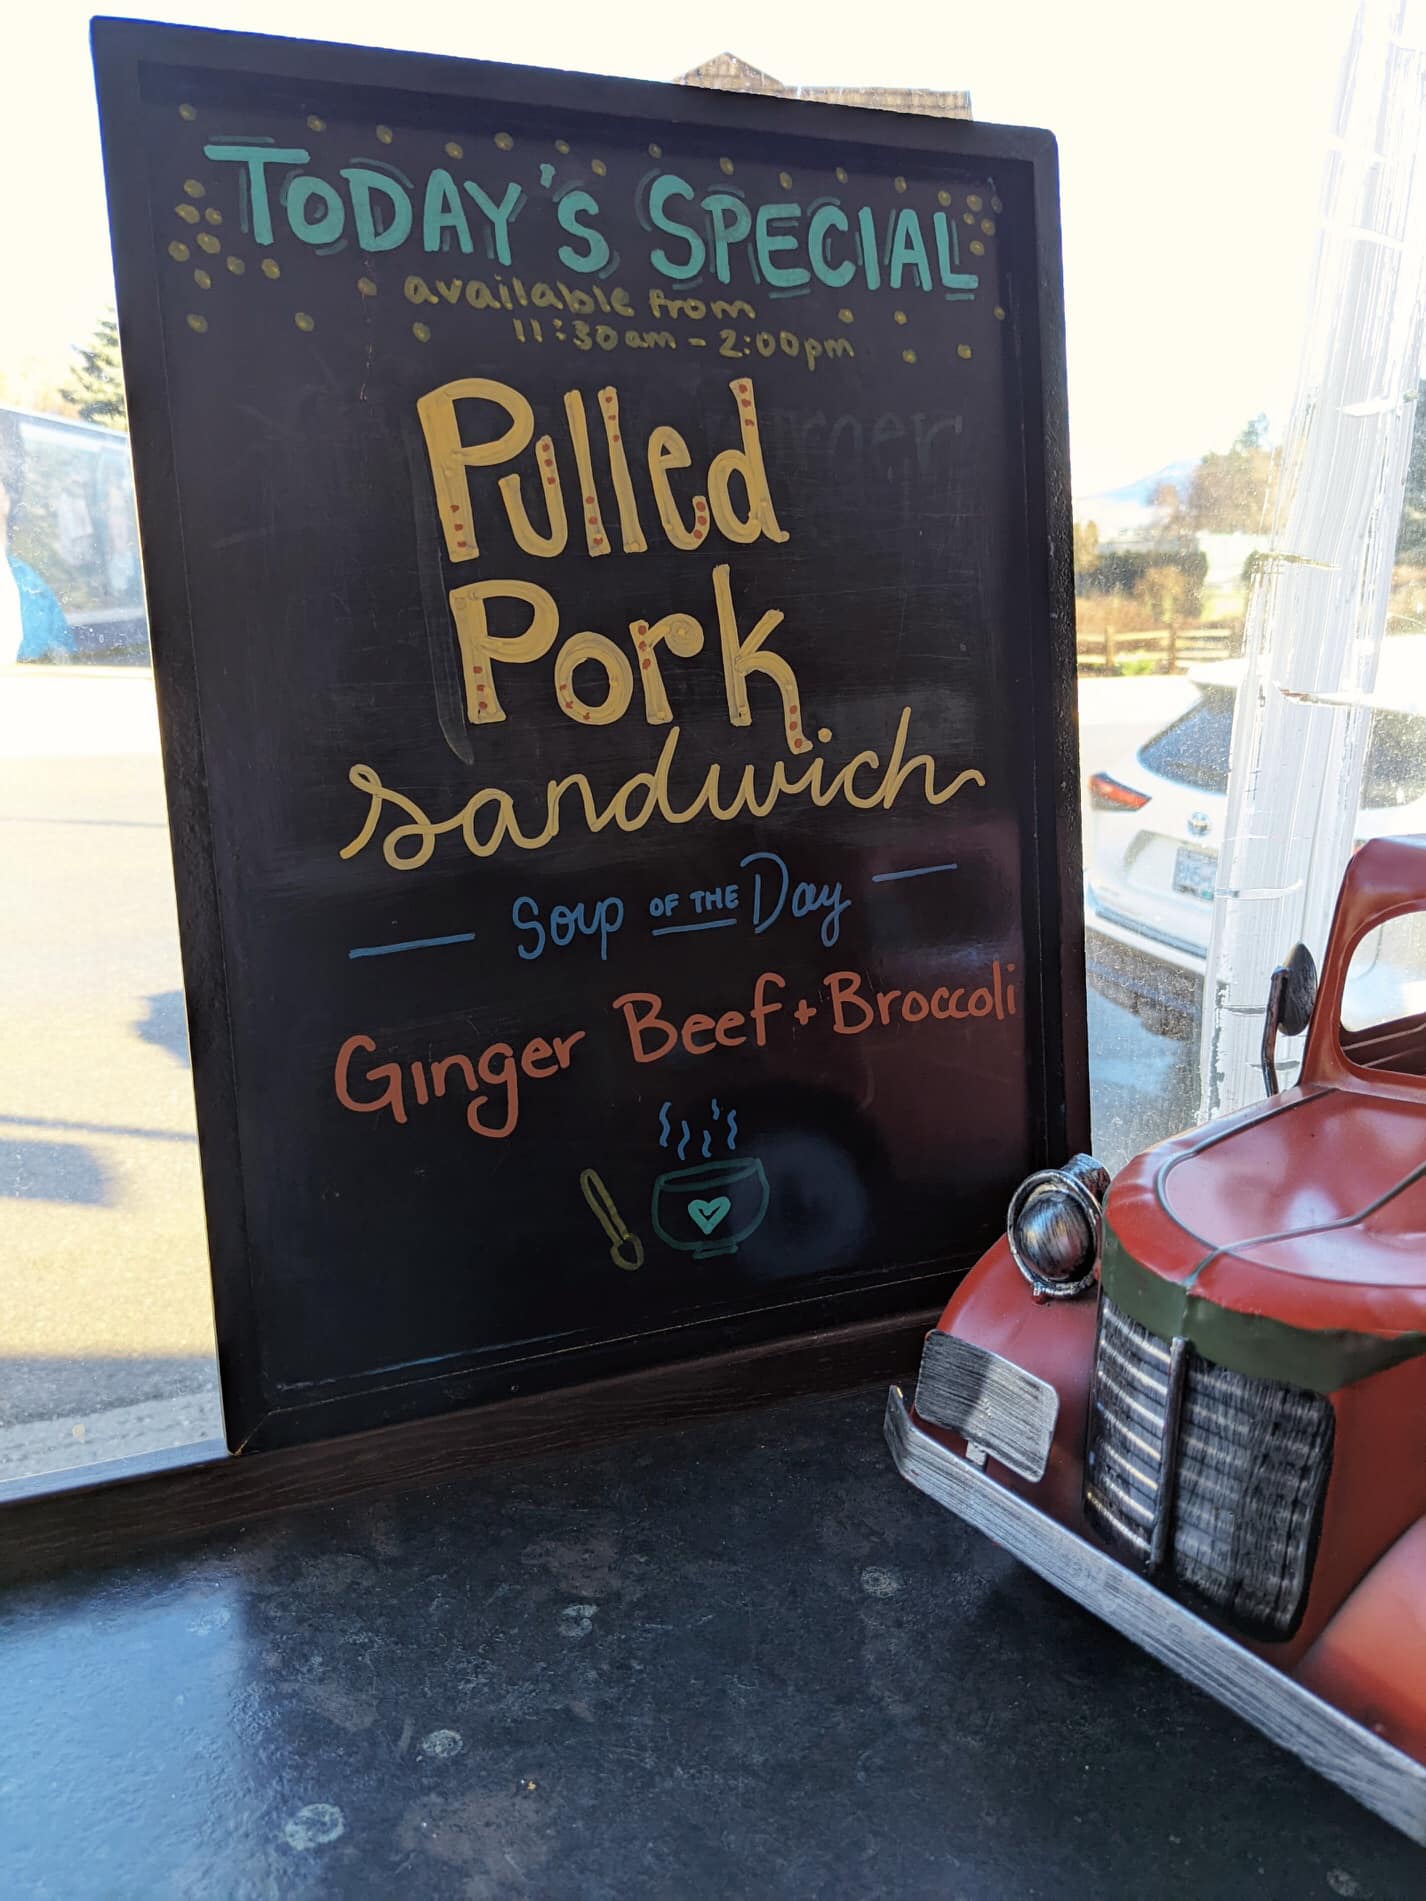 TODAY'S SPECIAL
available from
11:30am - 2:00pm
Pulled
Pork
sandwich
Soup OF THE Day
Ginger Beef + Broccoli